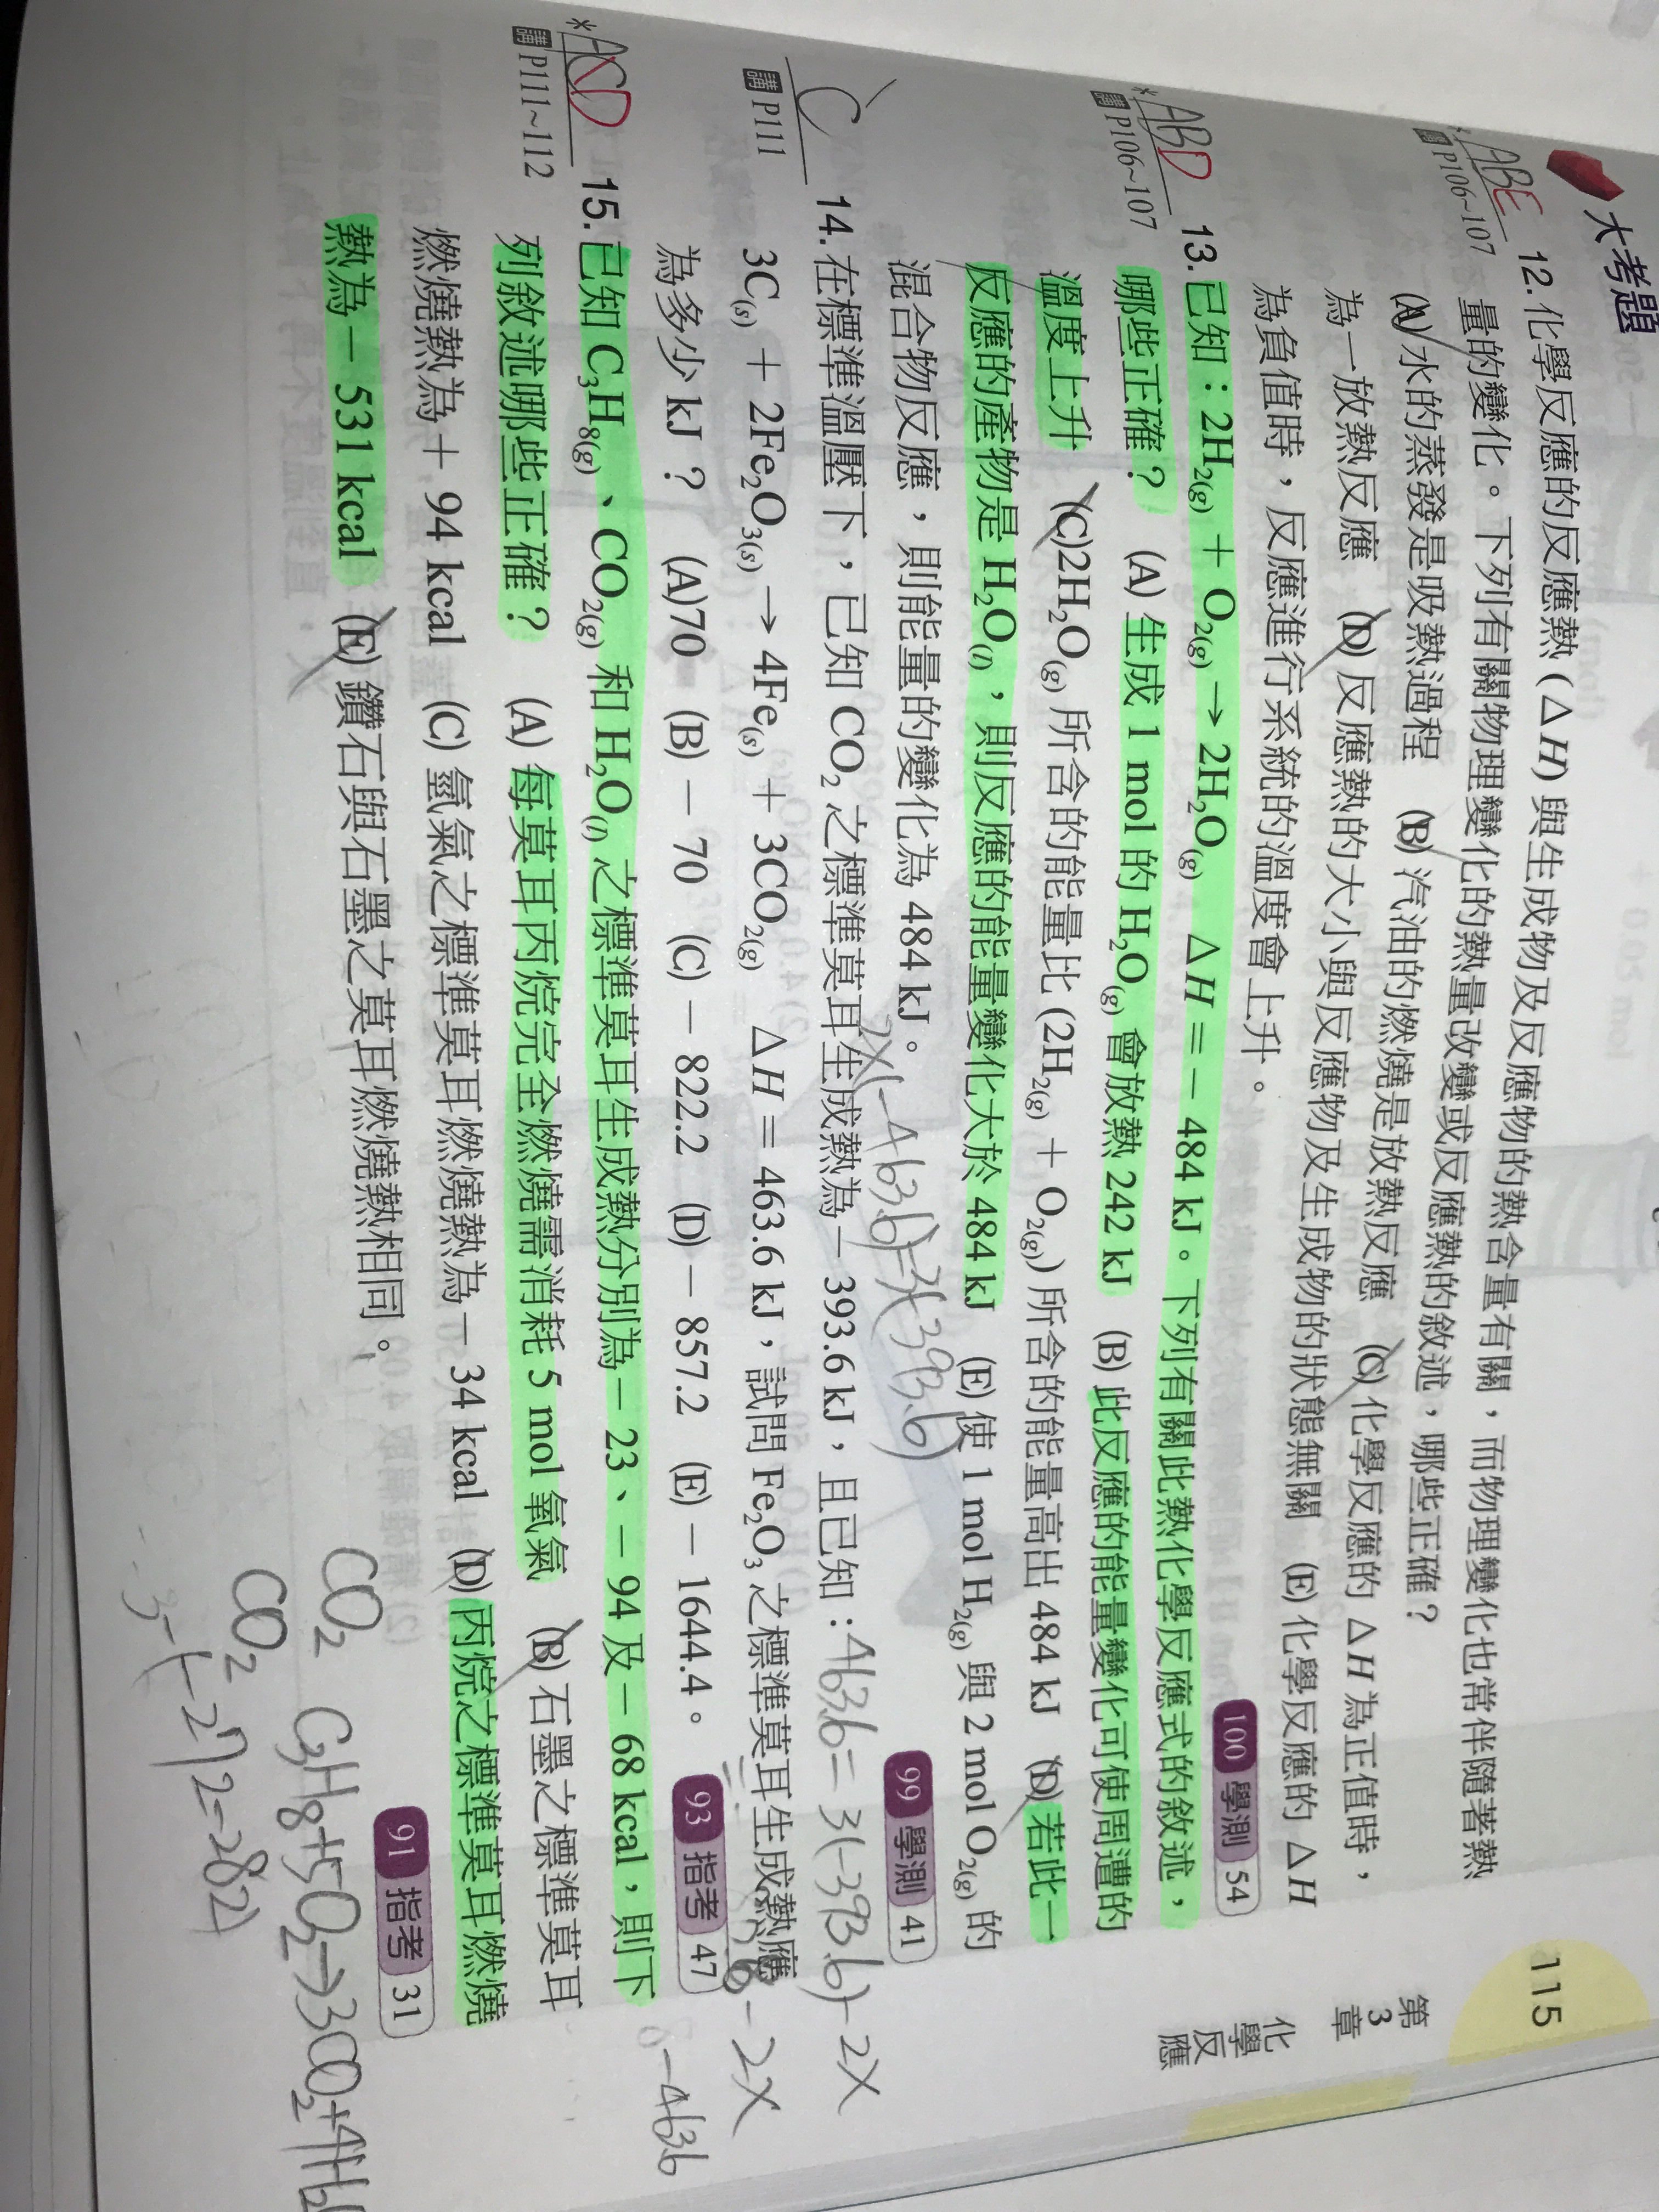 115
第3章
化學反應
大考題
ABE
P106~107
12. 化學反應的反應熱 (△H) 與生成物及反應物的熱含量有關，而物理變化也常伴隨著熱
量的變化。下列有關物理變化的熱量改變或反應熱的敘述，哪些正確？
(A) 水的蒸發是吸熱過程 (B) 汽油的燃燒是放熱反應 (C) 化學反應的 △H 為正值時，
為一放熱反應 (D) 反應熱的大小與反應物及生成物的狀態無關 (E) 化學反應的 △H
為負值時，反應進行系統的溫度會上升。
100 學測 54
*ABD
講 P106~107
13. 已知：2H₂(g) + O₂(g) → 2H₂O(g) △H = − 484 kJ。下列有關此熱化學反應式的敘述，
哪些正確？ (A) 生成 1 mol 的 H₂O(g) 會放熱 242 kJ (B) 此反應的能量變化可使周遭的
溫度上升 (C)2H₂O(g) 所含的能量比 (2H₂(g) + O₂(g)) 所含的能量高出 484 kJ (D) 若此一
反應的產物是 H₂O(l)，則反應的能量變化大於 484 kJ (E) 使 1 mol H₂(g) 與 2 mol O₂(g) 的
混合物反應，則能量的變化為 484 kJ。
99 學測 41
2X(-463.6)=3(-393.6)
C
講 P111
14. 在標準溫壓下，已知 CO₂ 之標準莫耳生成熱為 − 393.6 kJ，且已知：
463.6= 3(-393.6)-2X
3C(s) + 2Fe₂O₃(s) → 4Fe(s) + 3CO₂(g) △H = 463.6 kJ，試問 Fe₂O₃ 之標準莫耳生成熱應
為多少 kJ？ (A)70 (B) − 70 (C) − 822.2 (D) − 857.2 (E) − 1644.4。
93 指考 47
-2X
-463.6
*ACD
講 P111~112
15. 已知 C₃H₈(g)、CO₂(g) 和 H₂O(l) 之標準莫耳生成熱分別為 − 23、− 94 及 − 68 kcal，則下
列敘述哪些正確？ (A) 每莫耳丙烷完全燃燒需消耗 5 mol 氧氣 (B) 石墨之標準莫耳
燃燒熱為 + 94 kcal (C) 氫氣之標準莫耳燃燒熱為 − 34 kcal (D) 丙烷之標準莫耳燃燒
熱為 − 531 kcal (E) 鑽石與石墨之莫耳燃燒熱相同。
91 指考 31
CO₂ C₃H₈+5O₂→3CO₂+4H₂
CO₂